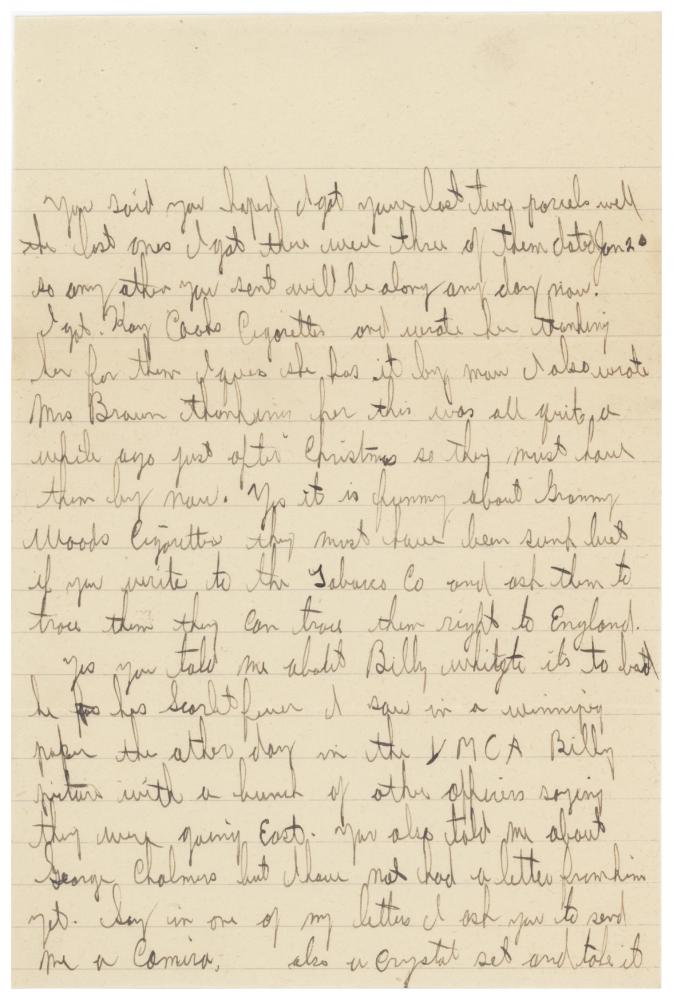 You said you hoped I got your last two parcels well
the last ones I got there were three of them dated Jan 20
so any other you sent will be along any day now.
I got. Kay Cooks Cigarettes and wrote her thanking
her for them I guess she has it by now I also wrote
Mrs Brown thanking her this was all quite a
while ago just after Christmas so they must have
them by now. Yes it is funny about Granny
Woods Cigarettes they must have been sunk but
if you write to the Tobacco Co and ask them to
trace them they can trace them right to England.
Yes you told me about Billy its to bad
he has Scarlet fever I saw in a winnipeg
paper the other day in the YMCA Billy
picture with a bunch of other officers saying
they were going East. You also told me about
George Chalmers but I have not had a letter from him
yet. Say in one of my letters I ask you to send
me a Comira, also a crystal set and take it